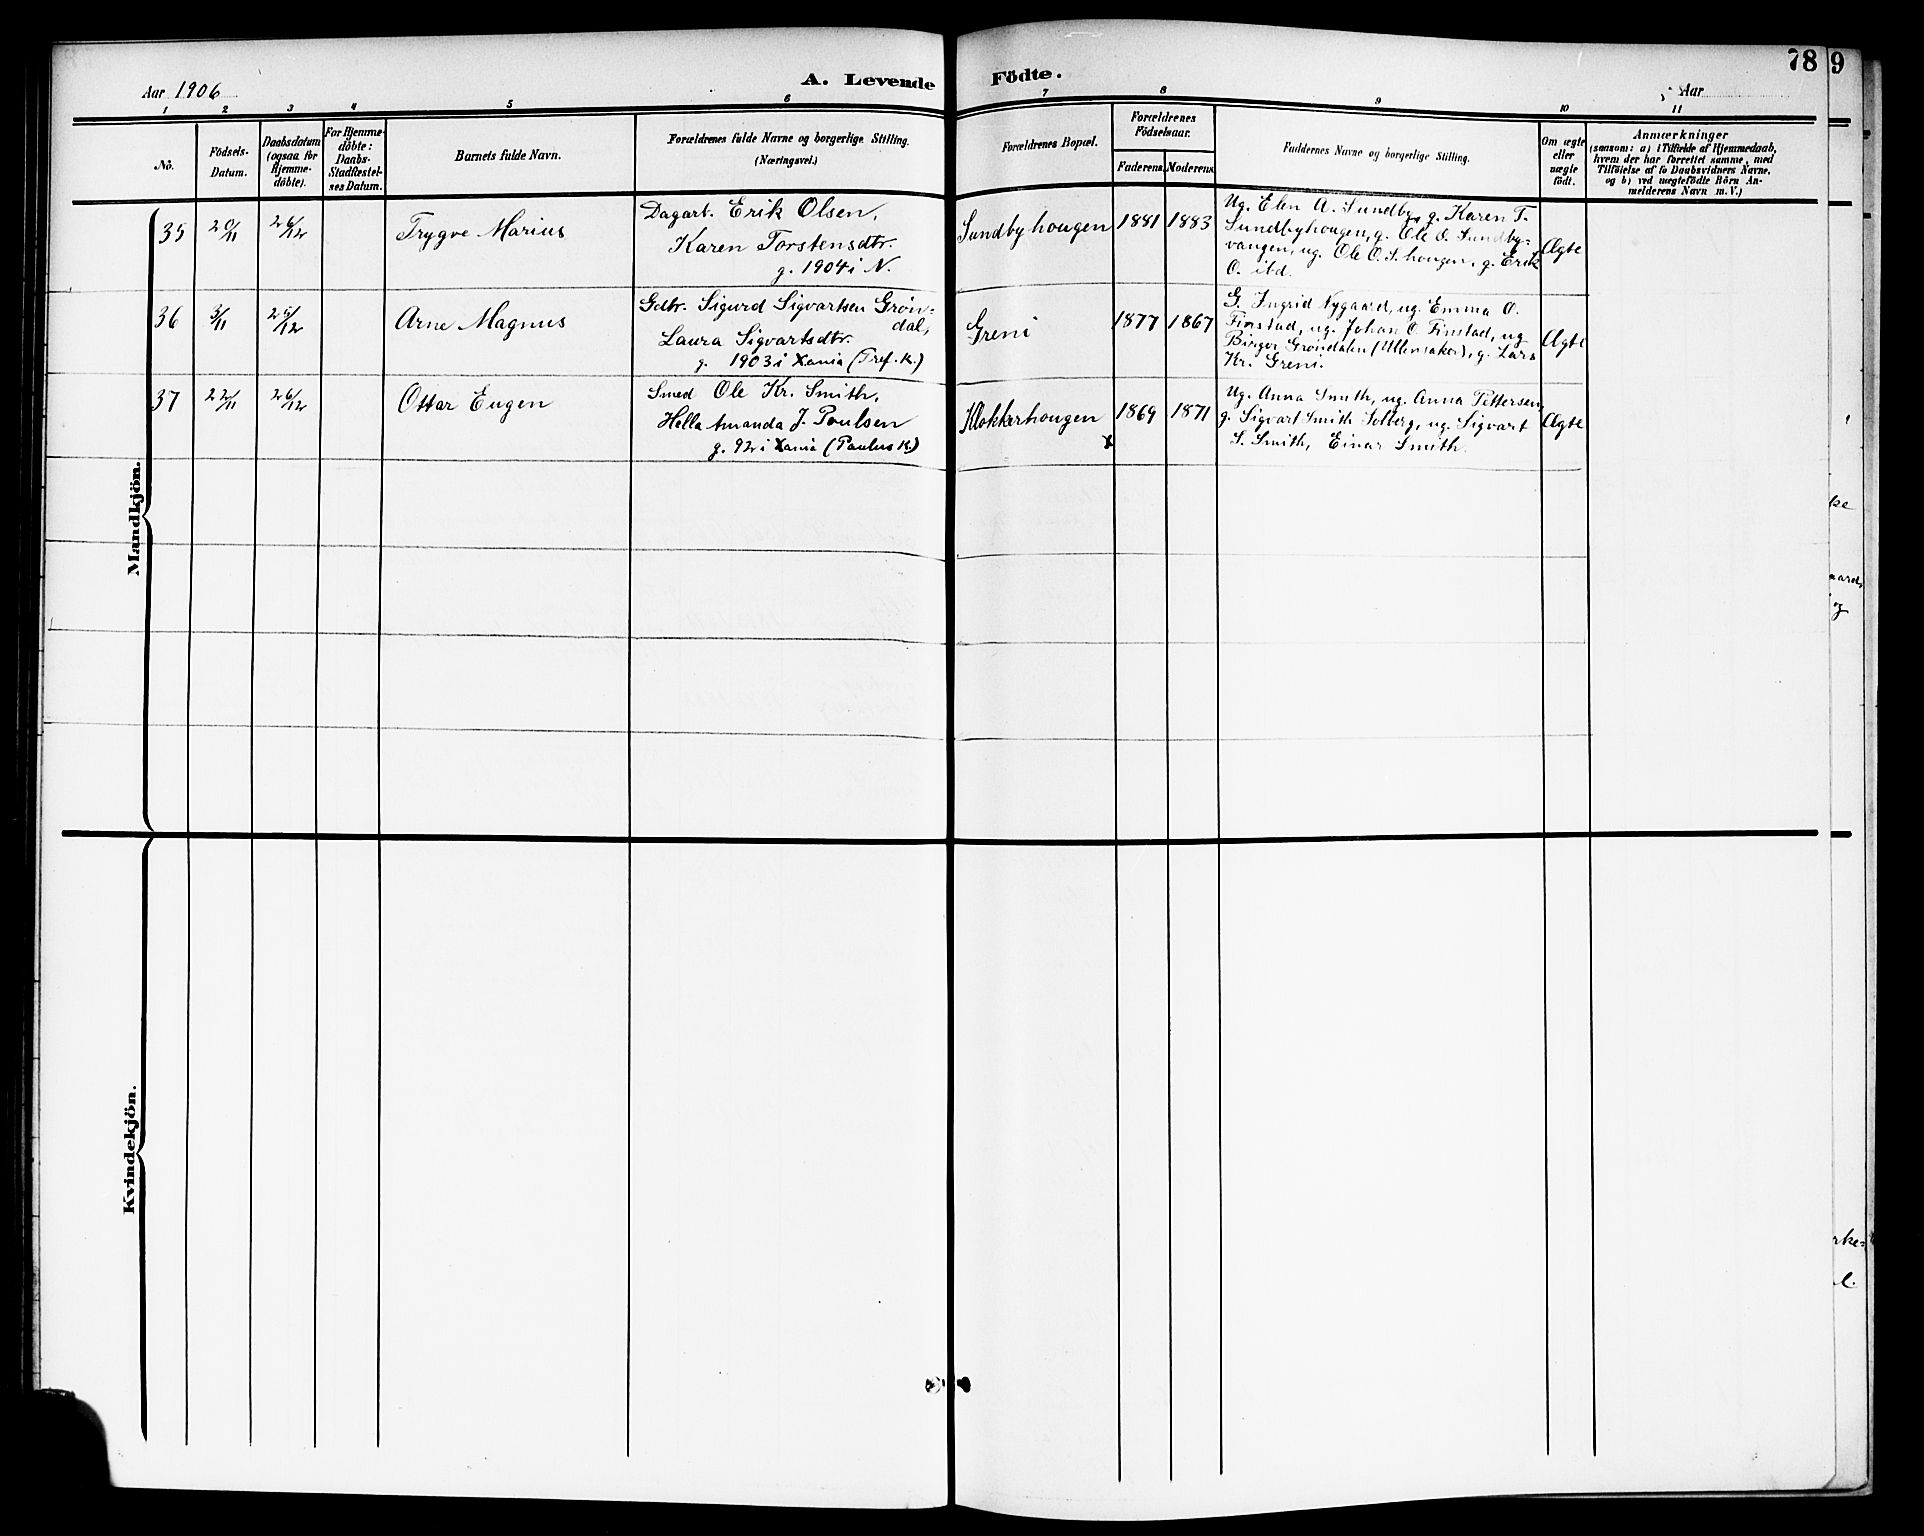 Aar 1906
A. Levende
Födte.
78
9
Aar
1 2 3 4 5 6 7 8 9 10 11
No.
Födsels-
Datum.
Daabsdatum
(ogsaa for
Hjemme-
döbte).
For Hjemme-
döbte:
Daabs-
Stadfæstel-
ses Datum.
Barnets fulde Navn.
Forældrenes fulde Navne og borgerlige Stilling.
(Næringsvei.)
Forældrenes Bopæl.
Forældrenes
Födselsaar.
Faderens. Moderens.
Faddernes Navne og borgerlige Stilling.
Om ægte
eller
uægte
födt.
Anmærkninger
(saasom: a) i Tilfælde af Hjemmedaab,
hvem der har forrettet samme, med
Tilföielse af to Daabsvidners Navne,
og b) ved uægtefödte Börn An-
melderens Navn m. V.)
Mandkjön.
35 20/11 26/12 Trygve Marius
Dagarb. Erik Olsen,
Karen Torstensdtr.
g. 1904 i N.
Sundbyhougen 1881 1883
Ug. Elen A. Sundby, g. Karen T.
Sundbyhougen, g. Ole O. Sundby-
vangen, ug. Ole O. S.hougen, g. Erik
O. ibd.
Ægte
36 3/11 25/12 Arne Magnus
Gdbr. Sigurd Sigvartsen Grøn-
dal,
Laura Sigvartsdtr.
g. 1903 i Xania (Tref. K.)
Greni 1877 1867
G. Ingrid Nygaard, ug. Emma O.
Finstad, ug. Johan O. Finstad, ug
Birger Grøndalen (Ullensaker), g. Lars
Kr. Greni.
Ægte
37 22/11 26/12 Ottar Eugen
Smed Ole Kr. Smith,
Hella Amanda J. Poulsen
g. 92 i Xania (Paulus K.)
Klokkerhougen 1869 1871
x
Ug. Anna Smith, ug. Anna Pettersen,
g. Sigvart Smith Solberg, ug. Sigvart
S. Smith, Einar Smith.
Ægte
Kvindekjön.